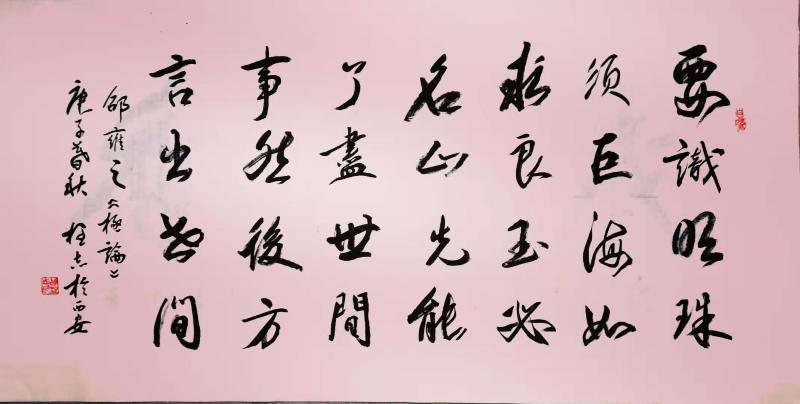 要識明珠
須巨海如
求良玉必
名山先能
了盡世間
事然後方
言出世間
邵雍之《極論》
庚子春秋 於西安